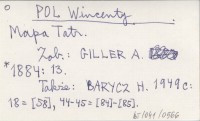 POL Wincenty.
Mapa Tatr.
Zob: GILLER A.
*1884: 13.
Także: BARYCZ H. 1949c:
18 = [58], 44-45 = [84]-[85].